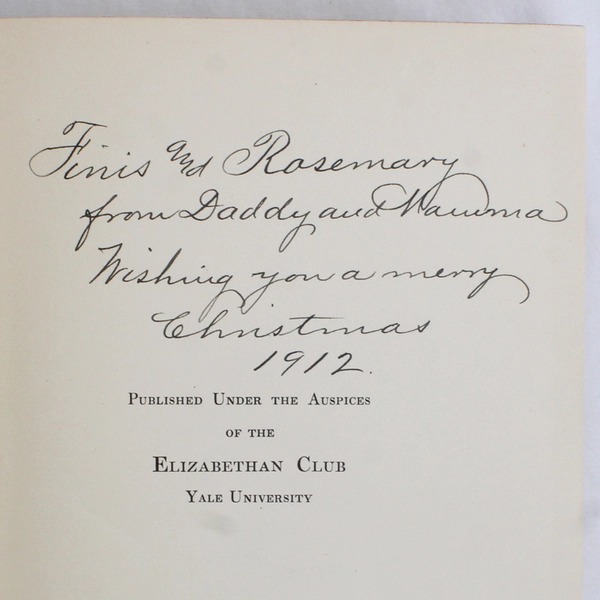 Finis and Rosemary
from Daddy and Mamma
Wishing you a merry
Christmas
1912.
Published Under the Auspices
of the
Elizabethan Club
Yale University